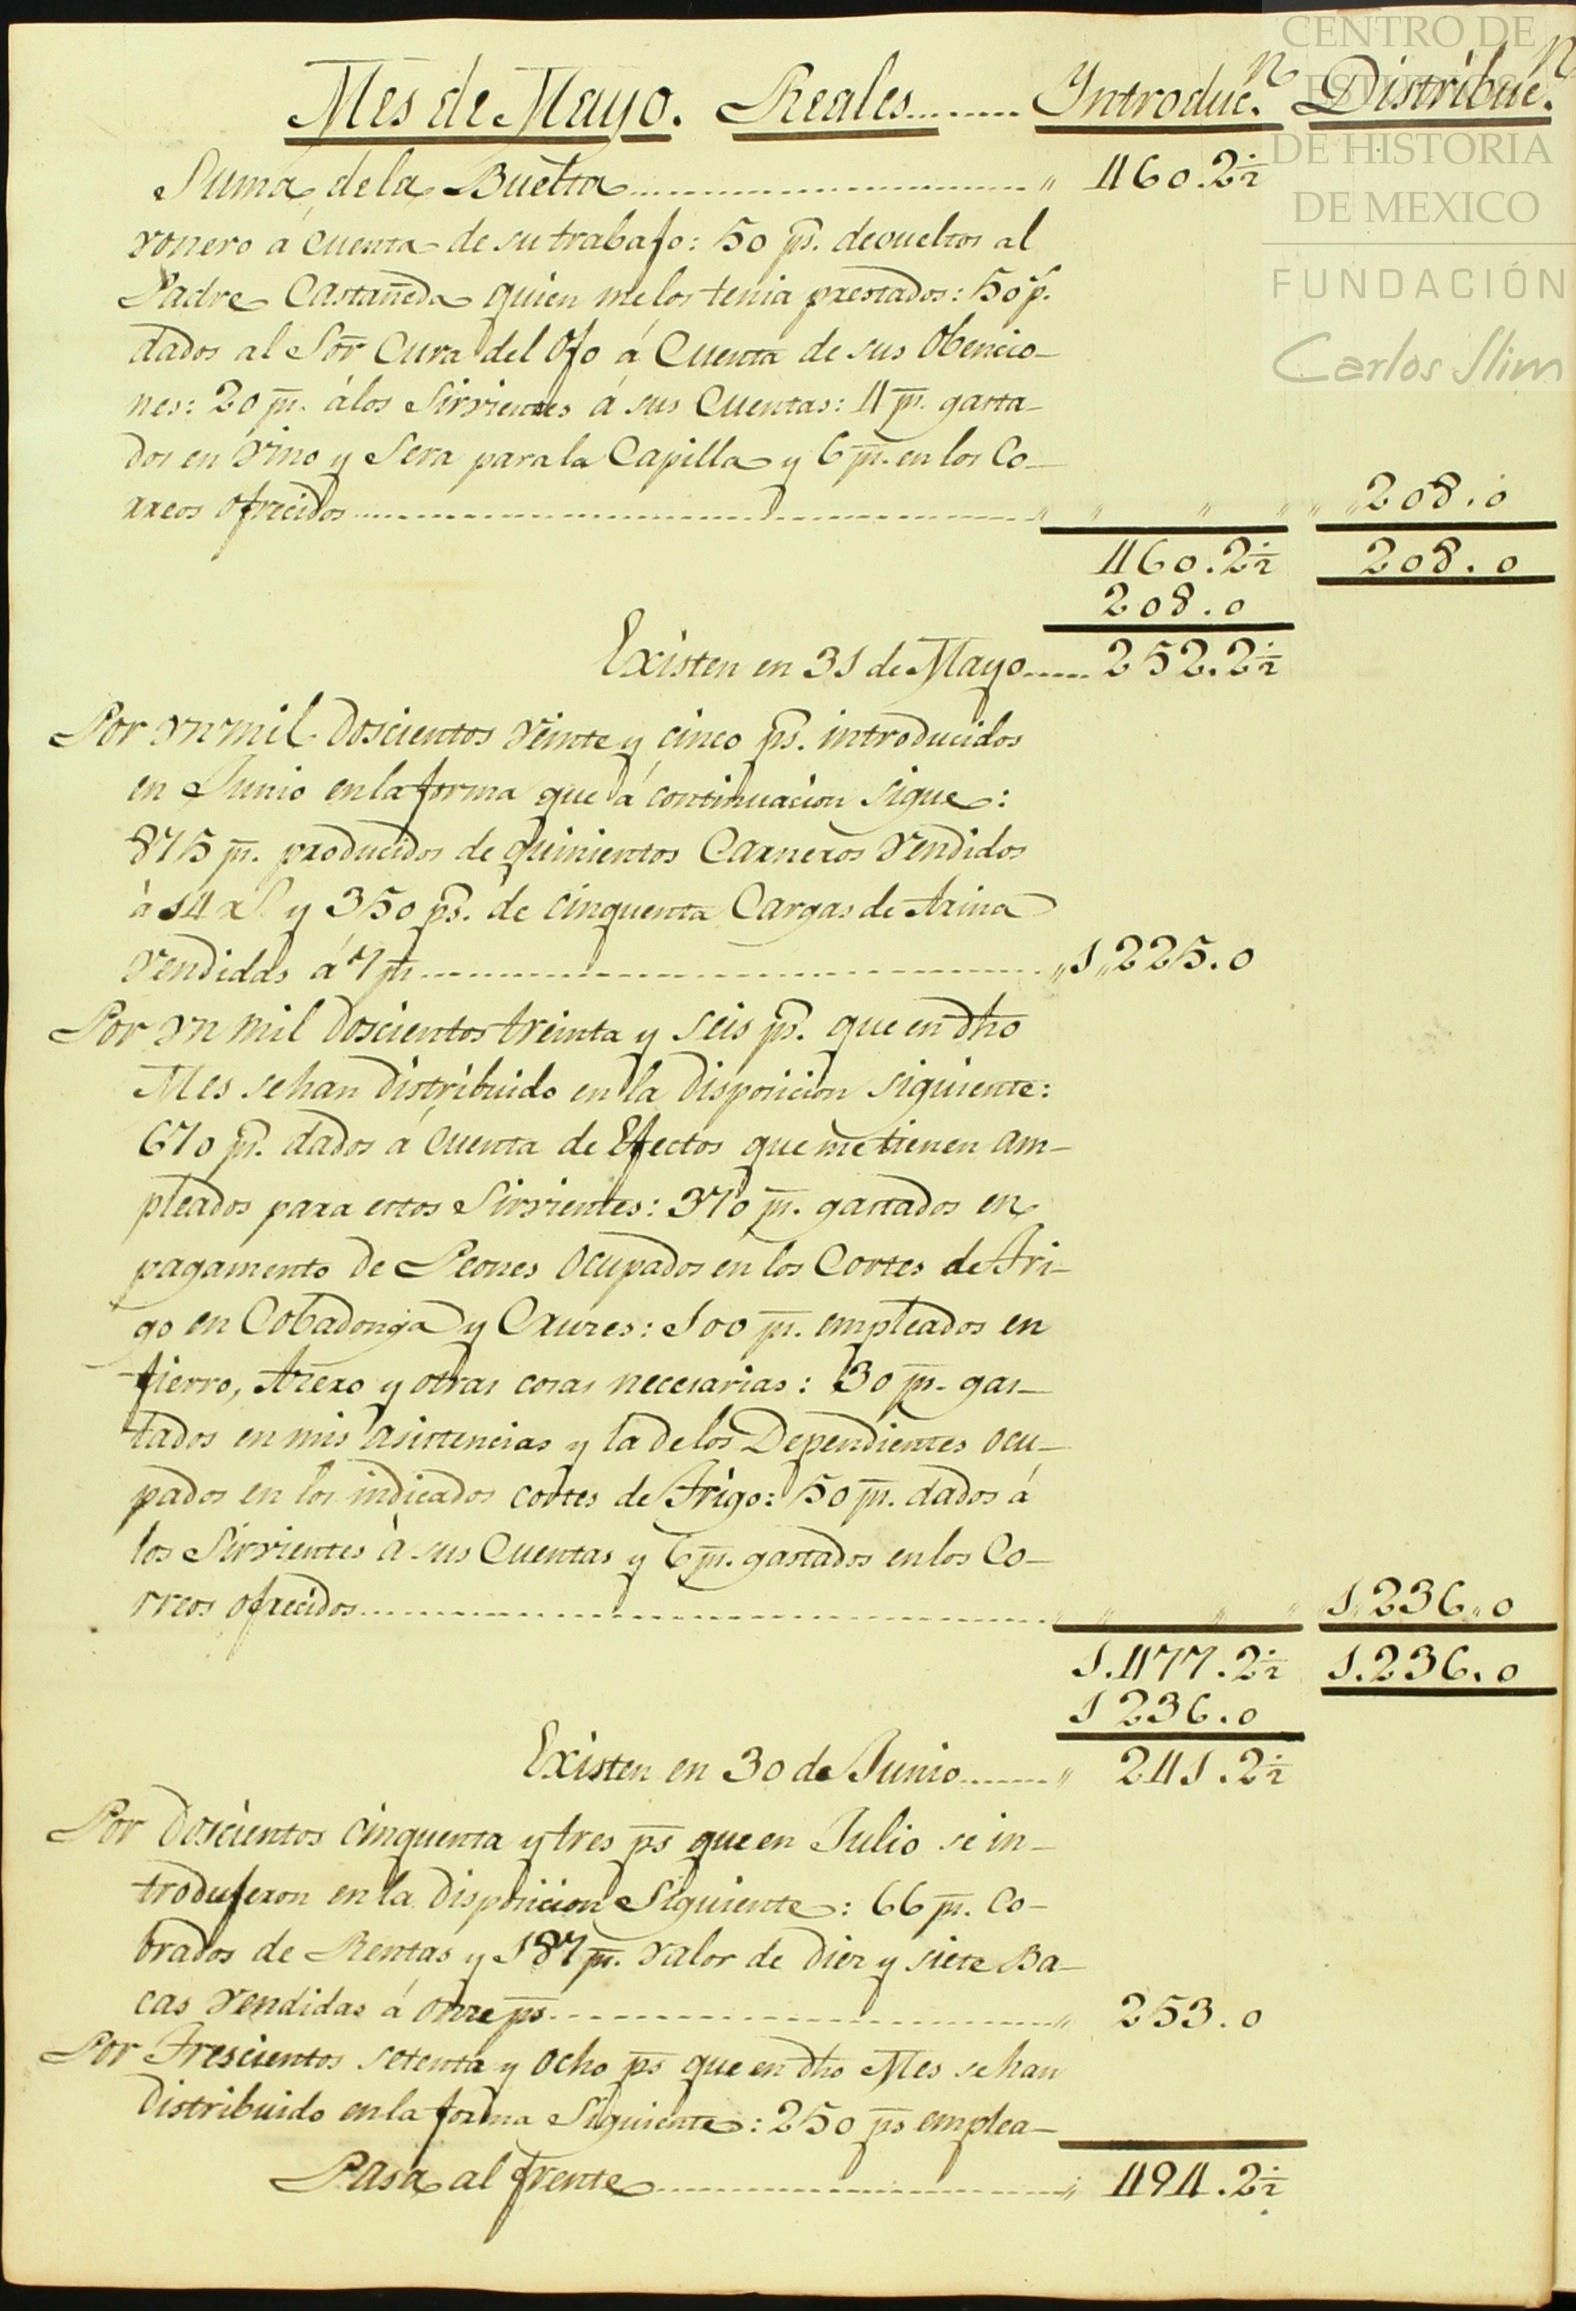 CENTRO DE
ESTUDIOS
DE HISTORIA
DE MEXICO
FUNDACIÓN
Carlos Slim
Mes de Mayo. Reales........ Introducⁿ. Distribucⁿ.
Suma de la Buelta............ " 460.2½
ronero á cuenta de su trabajo: 50 ps. devueltos al
Padre Castañeda quien me los tenia prestados: 50 p.
dados al Sōr Cura del Ojo á Cuenta de sus Obencio-
nes: 20 ps. á los Sirvientes á sus Cuentas: 4 ps. gasta-
dos en Vino y Sera para la Capilla y 6 ps. en los Co-
rreos ofrecidos............ " " " " " " 208.0
460.2½ 208.0
208.0
Existen en 31 de Mayo...... 252.2½
Por Vn mil Doscientos Veinte y cinco ps. introducidos
en Junio en la forma que á continuacion sigue:
875 ps. producidos de quinientos Carneros Vendidos
à 14 rs y 350 ps. de cinquenta Cargas de Arina
Vendidas á 7 ps............ "1"225.0
Por Vn mil Doscientos treinta y seis ps. que en dho
Mes se han distribuido en la disposicion siguiente:
670 ps. dados á cuenta de Efectos que me tienen am-
pleados para estos Sirvientes: 370 ps. gastados en
pagamento de Peones Ocupados en los Cortes de Tri-
go en Cobadonga y Cruzes: 100 ps. empleados en
fierro, Azero y otras cosas necesarias: 30 ps. gas-
tados en mis asistencias y la de los Dependientes ocu-
pados en los indicados cortes de Trigo: 50 ps. dados á
los Sirvientes à sus Cuentas y 6 ps. gastados en los Co-
rreos ofrecidos............ " " " " 1"236"0
1.477.2½ 1.236.0
1236.0
Existen en 30 de Junio........ " 241.2½
Por Doscientos cinquenta y tres ps que en Julio se in-
trodujeron en la disposicion Siguiente: 66 ps. Co-
brados de Rentas y 187 ps. Valor de Diez y siete Ba-
cas Vendidas á onze ps............ " 253.0
Por Trescientos setenta y ocho ps que en dho Mes se han
Distribuido en la forma Siguiente: 250 ps emplea-
Pasa al frente............ " 494.2½